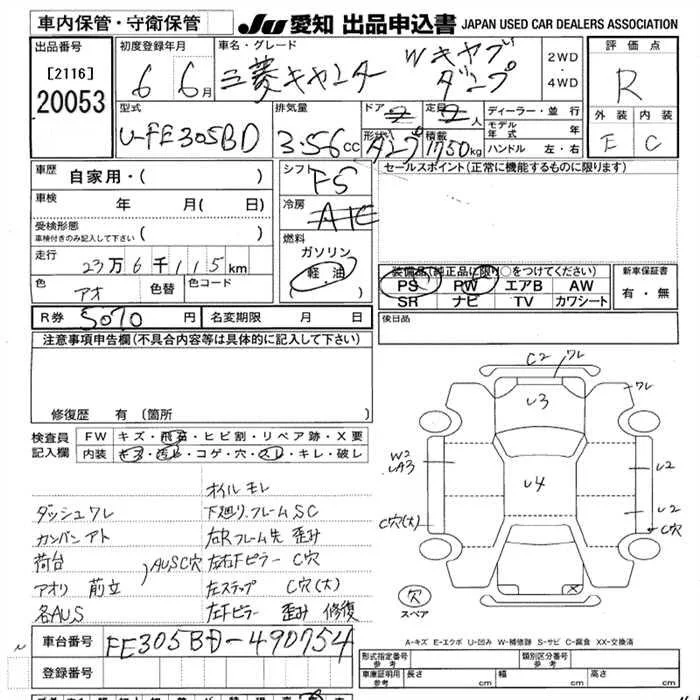 車内保管・守衛保管
JU 愛知 出品申込書 JAPAN USED CAR DEALERS ASSOCIATION
出品番号
[2116]
20053
初度登録年月
6 6月
車名・グレード
三菱キャンター Wキャブ ダンプ
2WD
・
4WD
評価点
R
外装 内装
E C
型式
U-FE305BD
排気量
3.56cc
ドア 2
形状 ダンプ
定員 2人
積載 1750kg
ディーラー・並行
モデル年式 年
ハンドル 左・右
車歴
自家用・( )
車検
年 月( 日)
受検形態
車検付きのみ記入して下さい ( )
走行
23万6千115km
色
アオ
色替
色コード
シフト
F5
冷房
AC
燃料
ガソリン
軽油
セールスポイント(正常に機能するものに限ります)
装備品(純正品に限り○をつけてください)
PS PW エアB AW
SR ナビ TV カワシート
新車保証書
有・無
R券 5070円
名変期限 月 日
後日品
注意事項申告欄(不具合内容等は具体的に記入して下さい)
修復歴 有 (箇所 )
検査員記入欄
FW キズ・飛石・ヒビ割・リペア跡・X要
内装 キズ・汚れ・コゲ・穴・スレ・キレ・破レ
オイルモレ
ダッシュワレ 下廻りフレームSC
カンバンアト 左Rフレーム先 歪み
荷台 AUSC穴 左右Fピラー C穴
アオリ 前立 左ステップ C穴(大)
各AUS 左Fピラー 歪み 修復
C2 ワレ
U3
ワレ
W2
UA3
U4
U2
C穴(大)
U2
C穴
穴
スペア
X
A-キズ E-エクボ U-凹み W-補修跡 S-サビ C-腐食 XX-交換済
車台番号 FE305BD-490754
登録番号
形式指定番号 参考
類別区分番号 参考
車庫証明用 参考
長さ cm 幅 cm 高さ cm